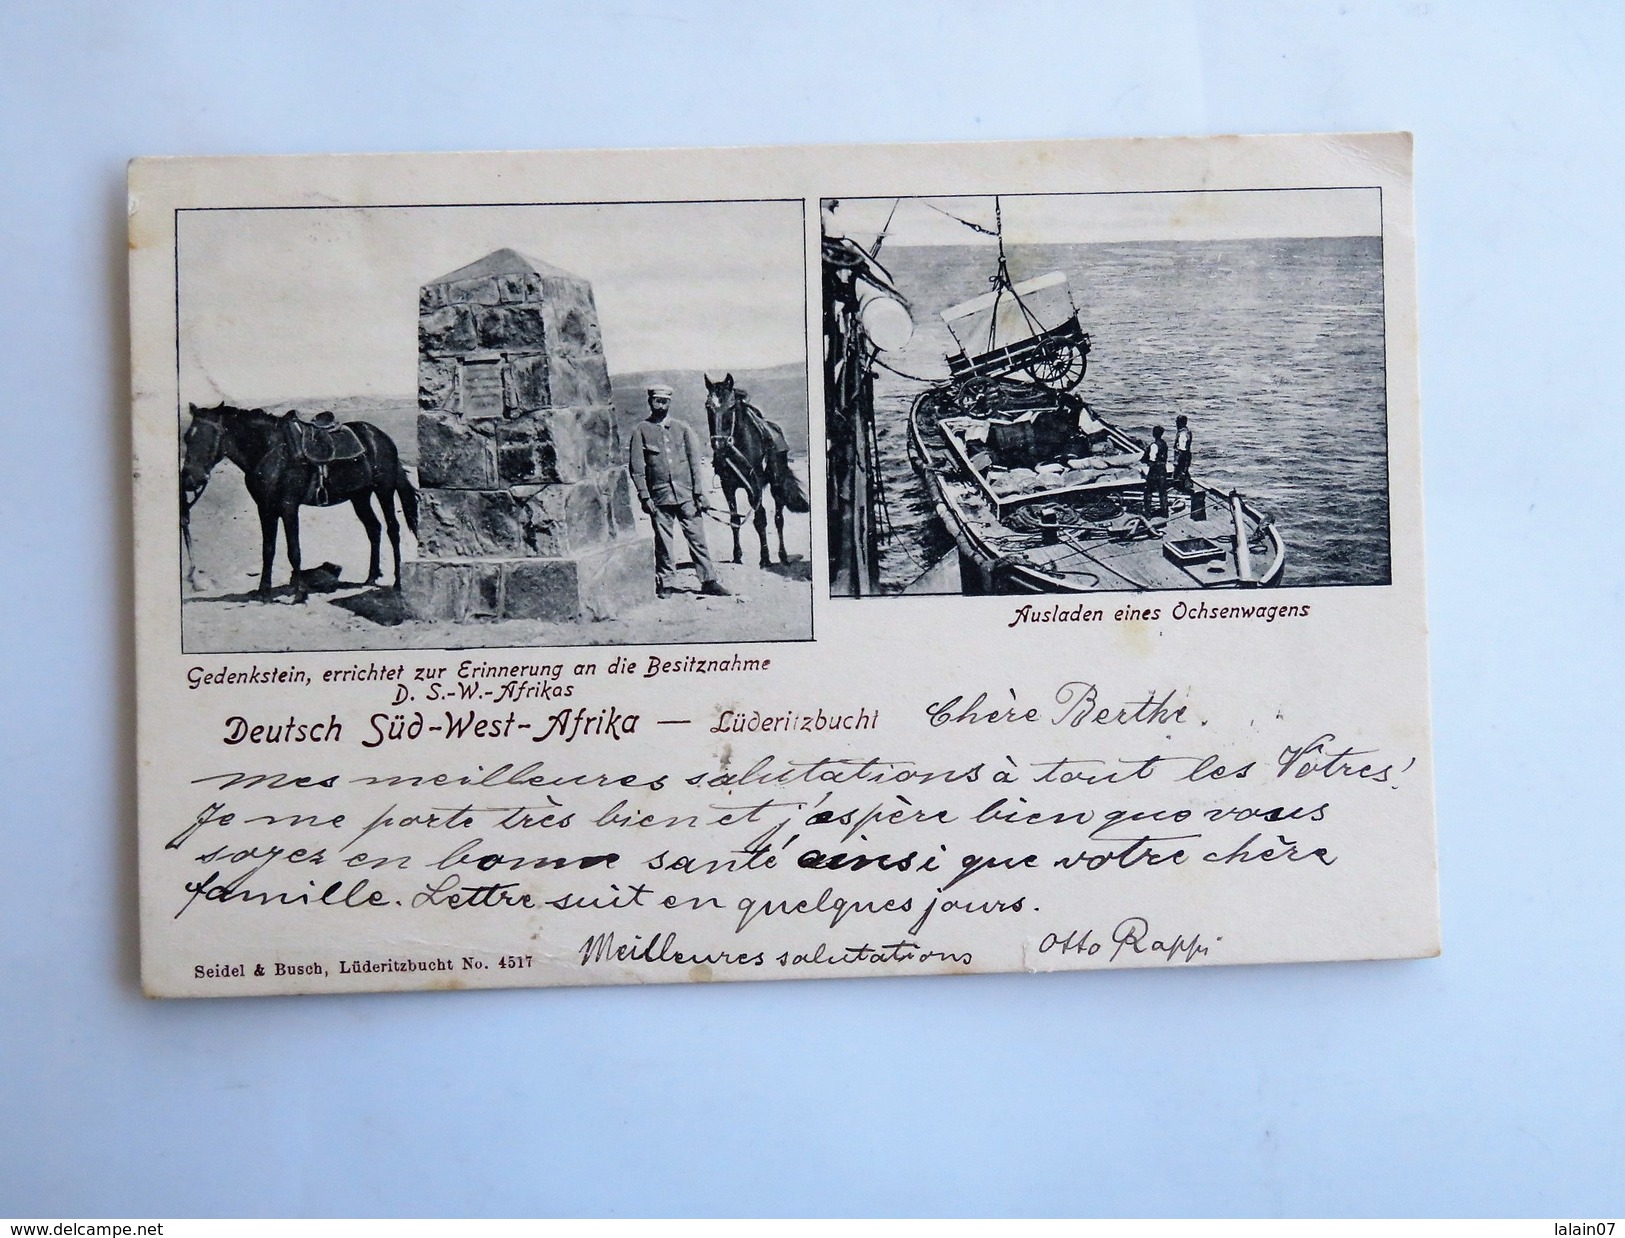 Gedenkstein, errichtet zur Erinnerung an die Besitznahme
D. S.-W.-Afrikas
Ausladen eines Ochsenwagens
Deutsch Süd-West-Afrika — Lüderitzbucht
Chère Berthe.
mes meilleures salutations à tout les Vôtres!
Je me porte très bien et j'espère bien que vous
soyez en bonne santé ainsi que votre chère
famille. Lettre suit en quelques jours.
Meilleures salutations Otto Rappi
Seidel & Busch, Lüderitzbucht No. 4517
www.delcampe.net
lalain07